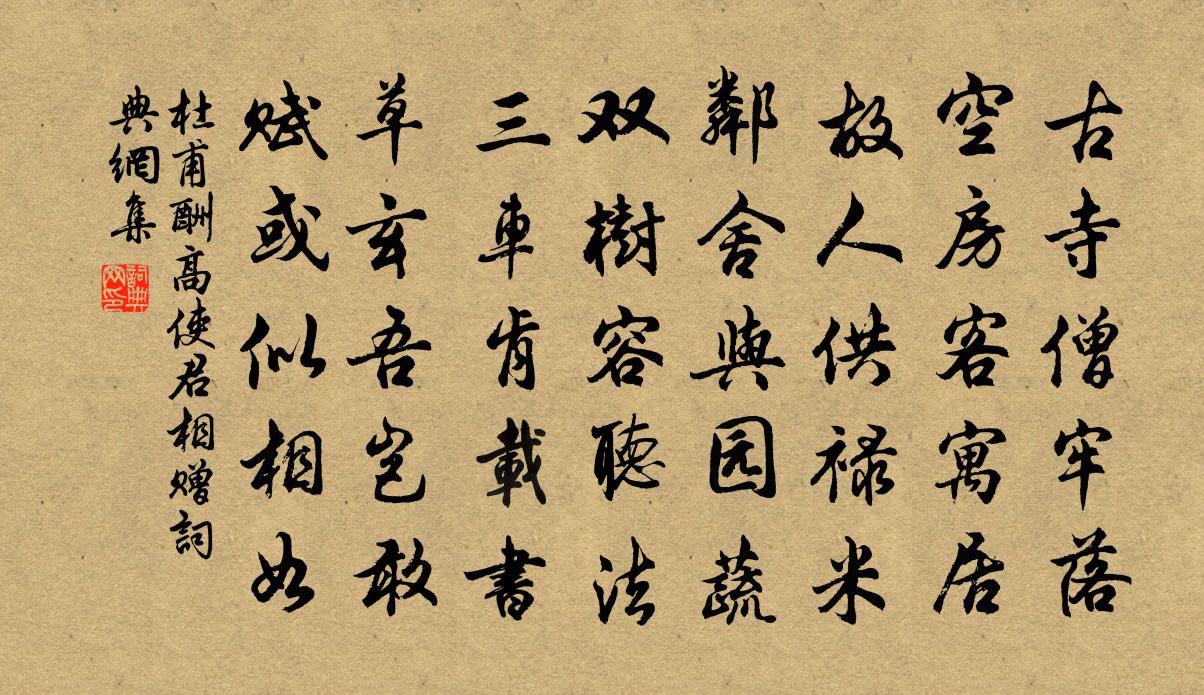 古寺僧牢落
空房客寓居
故人供禄米
鄰舍與园蔬
双樹容聽法
三車肯載書
草玄吾岂敢
賦或似相如
杜甫酬高使君相赠詞
典網集
詞典
网印